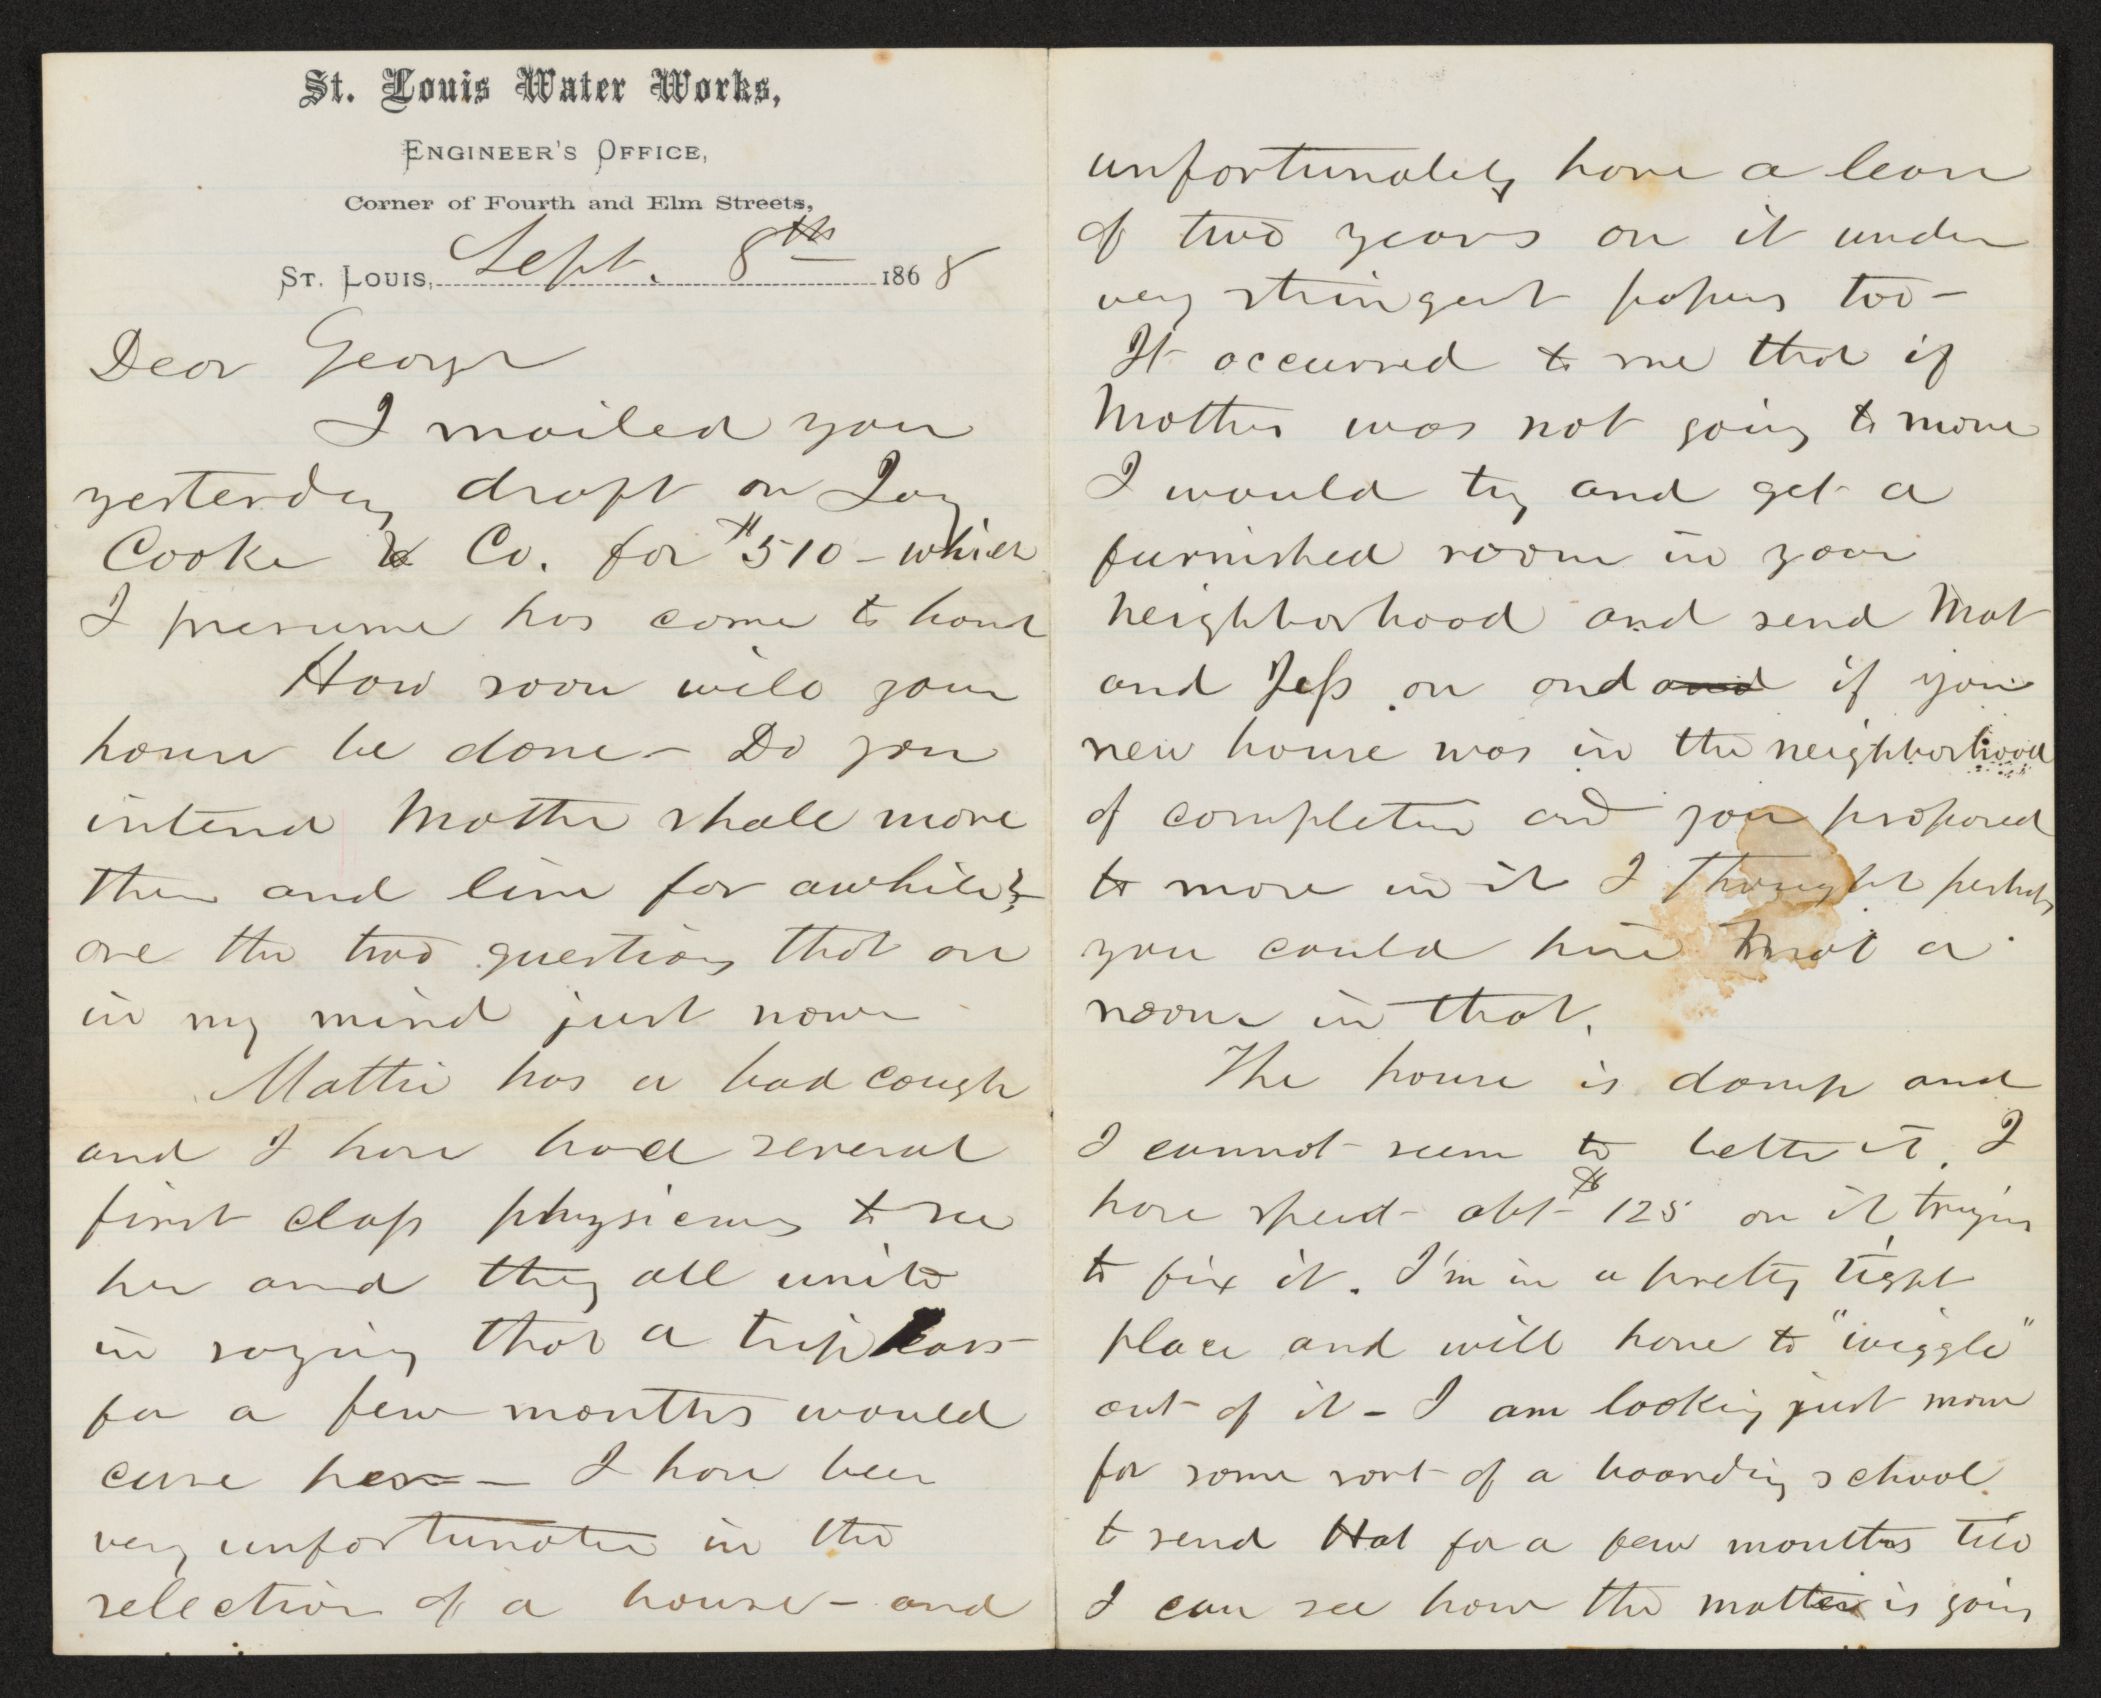 St. Louis Water Works,
ENGINEER'S OFFICE,
Corner of Fourth and Elm Streets,
ST. LOUIS, Sept. 8th 1868
Dear George
I mailed you
yesterday draft on Jay
Cooke & Co. for $510 – which
I presume has come to hand
How soon will your
house be done – Do you
intend Mother shall move
then and live for awhile?
are the two questions that are
in my mind just now
Mattie has a bad cough
and I have had several
first class physicians to see
her and they all unite
in saying that a trip East
for a few months would
cure her – I have been
very unfortunate in the
selection of a house – and
unfortunately have a lease
of two years on it under
very stringent papers too –
It occurred to me that if
Mother was not going to move
I would try and get a
furnished room in your
neighborhood and send Mat
and Jess on and and if your
new house was in the neighborhood
of completion and you proposed
to move in it I thought perhaps
you could hire Mat a
room in that.
The house is damp and
I cannot seem to better it. I
have spent abt $125 on it trying
to fix it. I'm in a pretty tight
place and will have to "wiggle"
out of it – I am looking just now
for some sort of a boarding school
to send Hat for a few months till
I can see how the matter is going